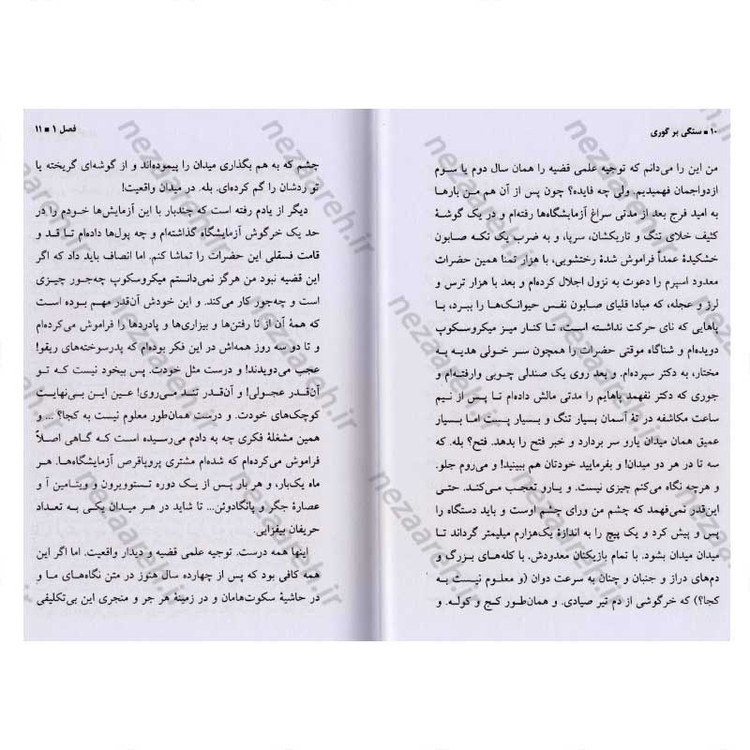 ۱۰ ■ سنگی بر گوری
من این را می‌دانم که توجیه علمی قضیه را همان سال دوم یا سوم
ازدواجمان فهمیدیم. ولی چه فایده؟ چون پس از آن هم من بارها
به امید فرج بعد از مدتی سراغ آزمایشگاه‌ها رفته‌ام و در یک گوشهٔ
کثیف خلای تنگ و تاریکشان، سرپا، و به ضرب یک تکه صابون
خشکیدهٔ عمداً فراموش شدهٔ رختشویی، با هزار تمنا همین حضرات
معدود اسپرم را دعوت به نزول اجلال کرده‌ام و بعد با هزار ترس و
لرز و عجله، که مبادا قلیای صابون نفس حیوانک‌ها را ببرد، با
پاهایی که نای حرکت نداشته است، تا کنار میز میکروسکوپ
دویده‌ام و شناگاه موقتی حضرات را همچون سر خولی هدیه به
مختار، به دکتر سپرده‌ام. و بعد روی یک صندلی چوبی وارفته‌ام و
جوری که دکتر نفهمد پاهایم را مدتی مالش داده‌ام تا پس از نیم
ساعت مکاشفه در تهٔ آسمان بسیار تنگ و بسیار پست اما بسیار
عمیق همان میدان یارو سر بردارد و خبر فتح را بدهد. فتح؟ بله. که
سه تا در هر دو میدان! و بفرمایید خودتان هم ببینید! و می‌روم جلو.
و هرچه نگاه می‌کنم چیزی نیست. و یارو تعجب می‌کند. حتی
این‌قدر نمی‌فهمد که چشم من ورای چشم اوست و باید دستگاه را
پس و پیش کرد و یک پیچ را به اندازهٔ یک‌هزارم میلیمتر گرداند تا
میدان میدان بشود. با تمام بازیکنان معدودش، با کله‌های بزرگ و
دم‌های دراز و جنبان و چنان به سرعت دوان (و معلوم نیست به
کجا؟) که خرگوشی از دم تیر صیادی. و همان‌طور کج و کوله. و
فصل ۱ ■ ۱۱
چشم که به هم بگذاری میدان را پیموده‌اند و از گوشه‌ای گریخته یا
تو ردشان را گم کرده‌ای. بله. در میدان واقعیت!
دیگر از یادم رفته است که چندبار با این آزمایش‌ها خودم را در
حد یک خرگوش آزمایشگاه گذاشته‌ام و چه پول‌ها داده‌ام تا قد و
قامت فسقلی این حضرات را تماشا کنم. اما انصاف باید داد که اگر
این قضیه نبود من هرگز نمی‌دانستم میکروسکوپ چه‌جور چیزی
است و چه‌جور کار می‌کند. و این خودش آن‌قدر مهم بوده است
که همهٔ آن از تا رفتن‌ها و بیزاری‌ها و پادردها را فراموش می‌کرده‌ام
و تا دو سه روز همه‌اش در این فکر بوده‌ام که پدرسوخته‌های ریقو!
عجب می‌دویدند! و درست مثل خودت. پس بیخود نیست که تو
آن‌قدر عجولی! و آن‌قدر تند می‌روی! عین این بی‌نهایت
کوچک‌های خودت. و درست همان‌طور معلوم نیست به کجا؟ ... و
همین مشغلهٔ فکری چه به دادم می‌رسیده است که گاهی اصلاً
فراموش می‌کرده‌ام که شده‌ام مشتری پروپاقرص آزمایشگاه‌ها. هر
ماه یک‌بار، و هر بار پس از یک دوره تستوویرون و ویتامین آ و
عصارهٔ جگر و پانگادوئن... تا شاید در هر میدان یکی به تعداد
حریفان بیفزایی.
اینها همه درست. توجیه علمی قضیه و دیدار واقعیت. اما اگر این
همه کافی بود که پس از چهارده سال هنوز در متن نگاه‌های ما و
در حاشیهٔ سکوت‌هامان و در زمینهٔ هر جر و منجری این بی‌تکلیفی
nezaareh.ir
nezaareh.ir
nezaareh.ir
nezaareh.ir
nezaareh.ir
nezaareh.ir